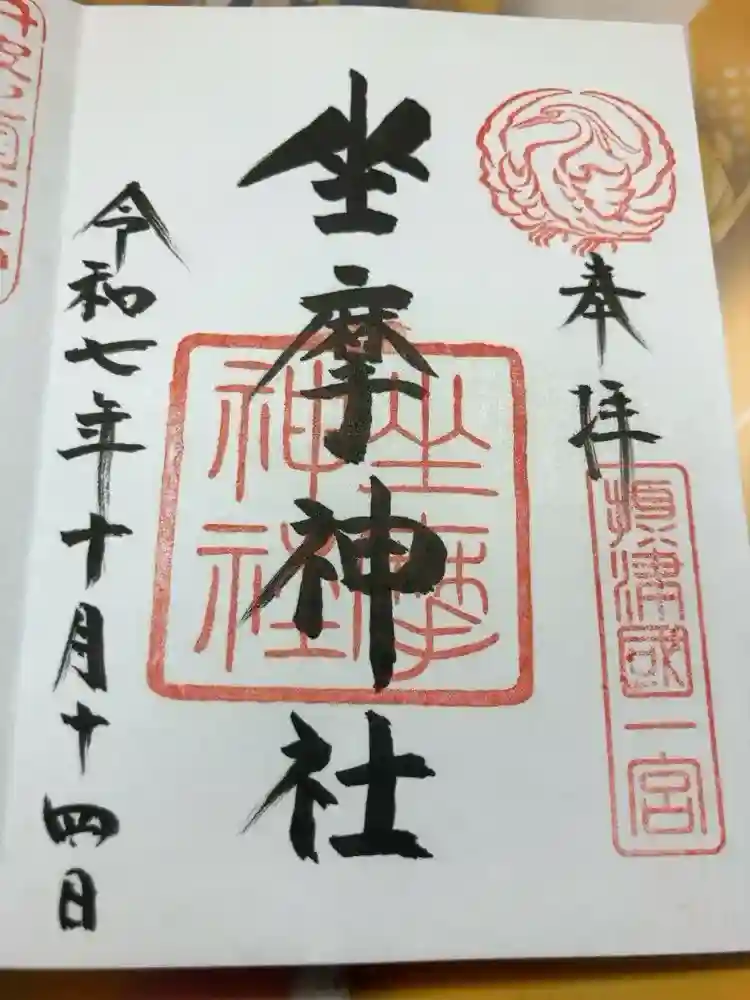 奉拝
攝津國一宮
坐摩神社
坐摩
神社
令和七年十月十四日